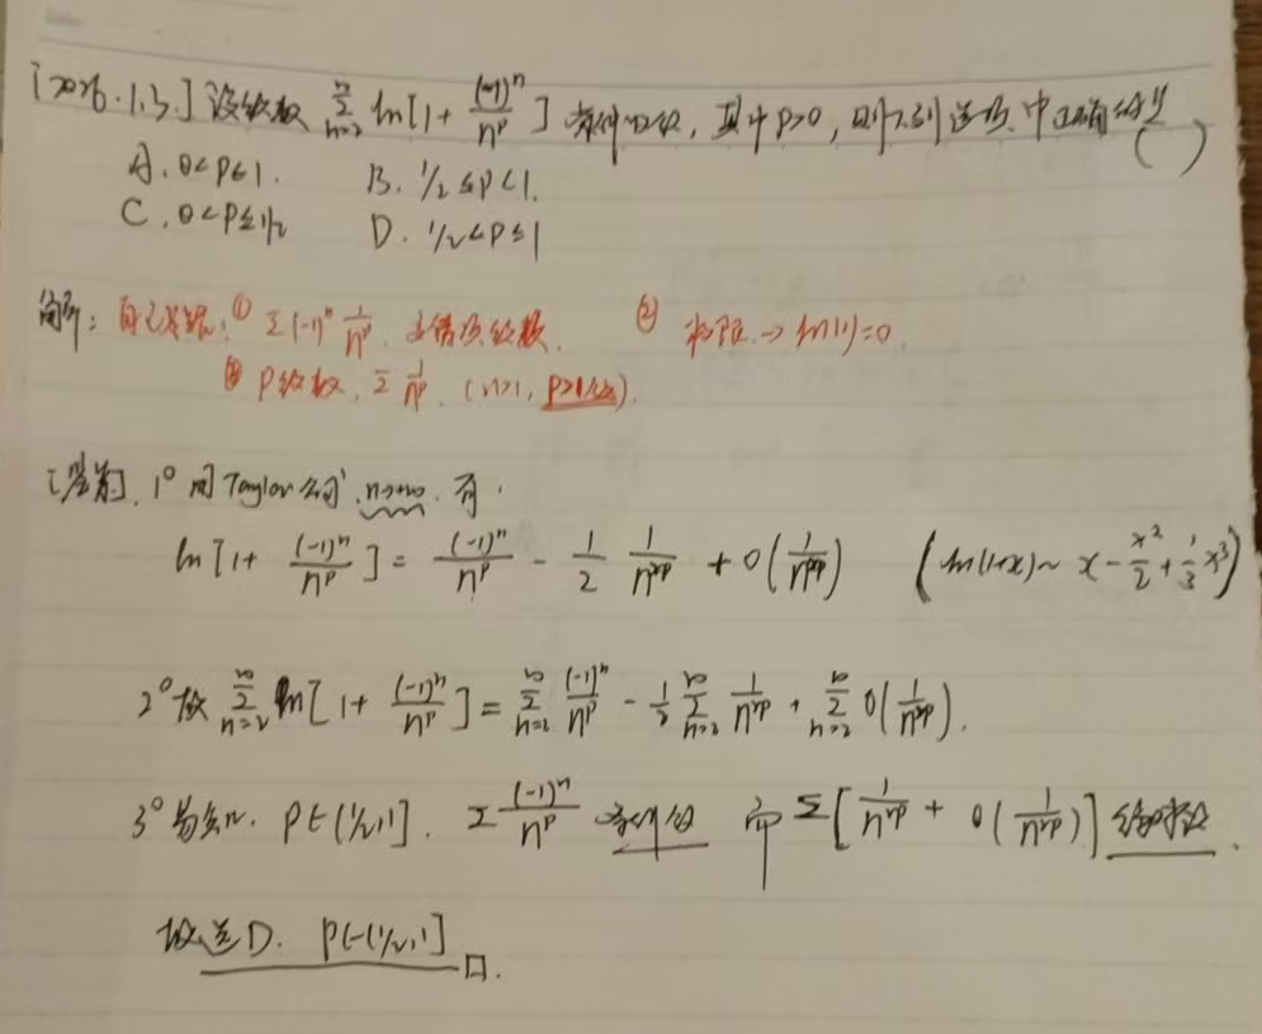 [2026.1.3.] 设级数 $\sum_{n=2}^{\infty} \ln[1+\frac{(-1)^n}{n^p}]$ 条件收敛, 其中 p>0, 则下列选项中正确的是 ( )
A. 0<p≤1. B. 1/2≤p<1.
C. 0<p≤1/2 D. 1/2<p≤1
分析: ① $\sum(-1)^n\frac{1}{n^p}$. 交错项级数. ② 极限→ln(1)=0.
③ P级数. $\sum\frac{1}{n^p}$. (n>1,
1° 由Taylor公式, n→∞. 有.
$\ln[1+\frac{(-1)^n}{n^p}]=\frac{(-1)^n}{n^p}-\frac{1}{2}\frac{1}{n^{2p}}+o(\frac{1}{n^{2p}})$ $(\ln(1+x)\sim x-\frac{x^2}{2}+\frac{1}{3}x^3)$
2° 故 $\sum_{n=2}^{\infty}\ln[1+\frac{(-1)^n}{n^p}]=\sum_{n=2}^{\infty}\frac{(-1)^n}{n^p}-\frac{1}{2}\sum_{n=2}^{\infty}\frac{1}{n^{2p}}+\sum_{n=2}^{\infty}o(\frac{1}{n^{2p}})$.
3° 易知. p∈(1/2,1]. $\sum\frac{(-1)^n}{n^p}$ 条件收 而 $\sum[\frac{1}{n^{2p}}+o(\frac{1}{n^{2p}})]$ 绝对收.
故选D. p∈(1/2,1] □.